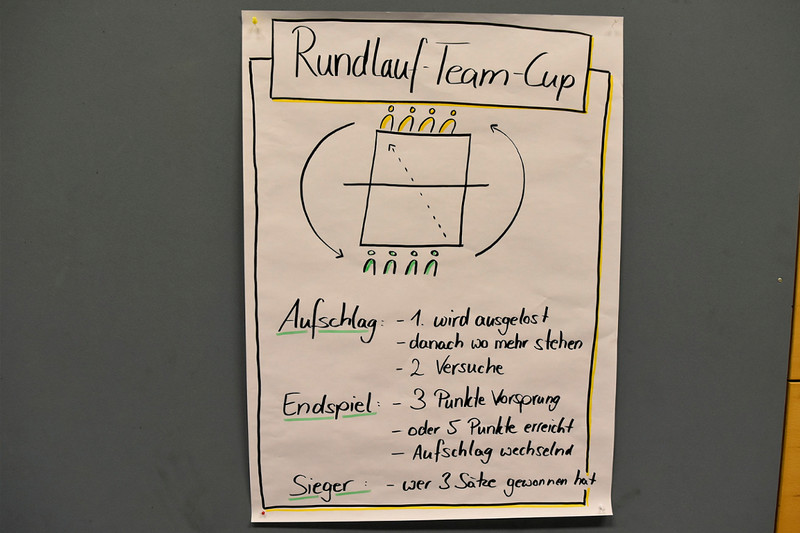 Rundlauf-Team-Cup
Aufschlag: - 1. wird ausgelost
- danach wo mehr stehen
- 2 Versuche
Endspiel: - 3 Punkte Vorsprung
- oder 5 Punkte erreicht
- Aufschlag wechselnd
Sieger: - wer 3 Sätze gewonnen hat